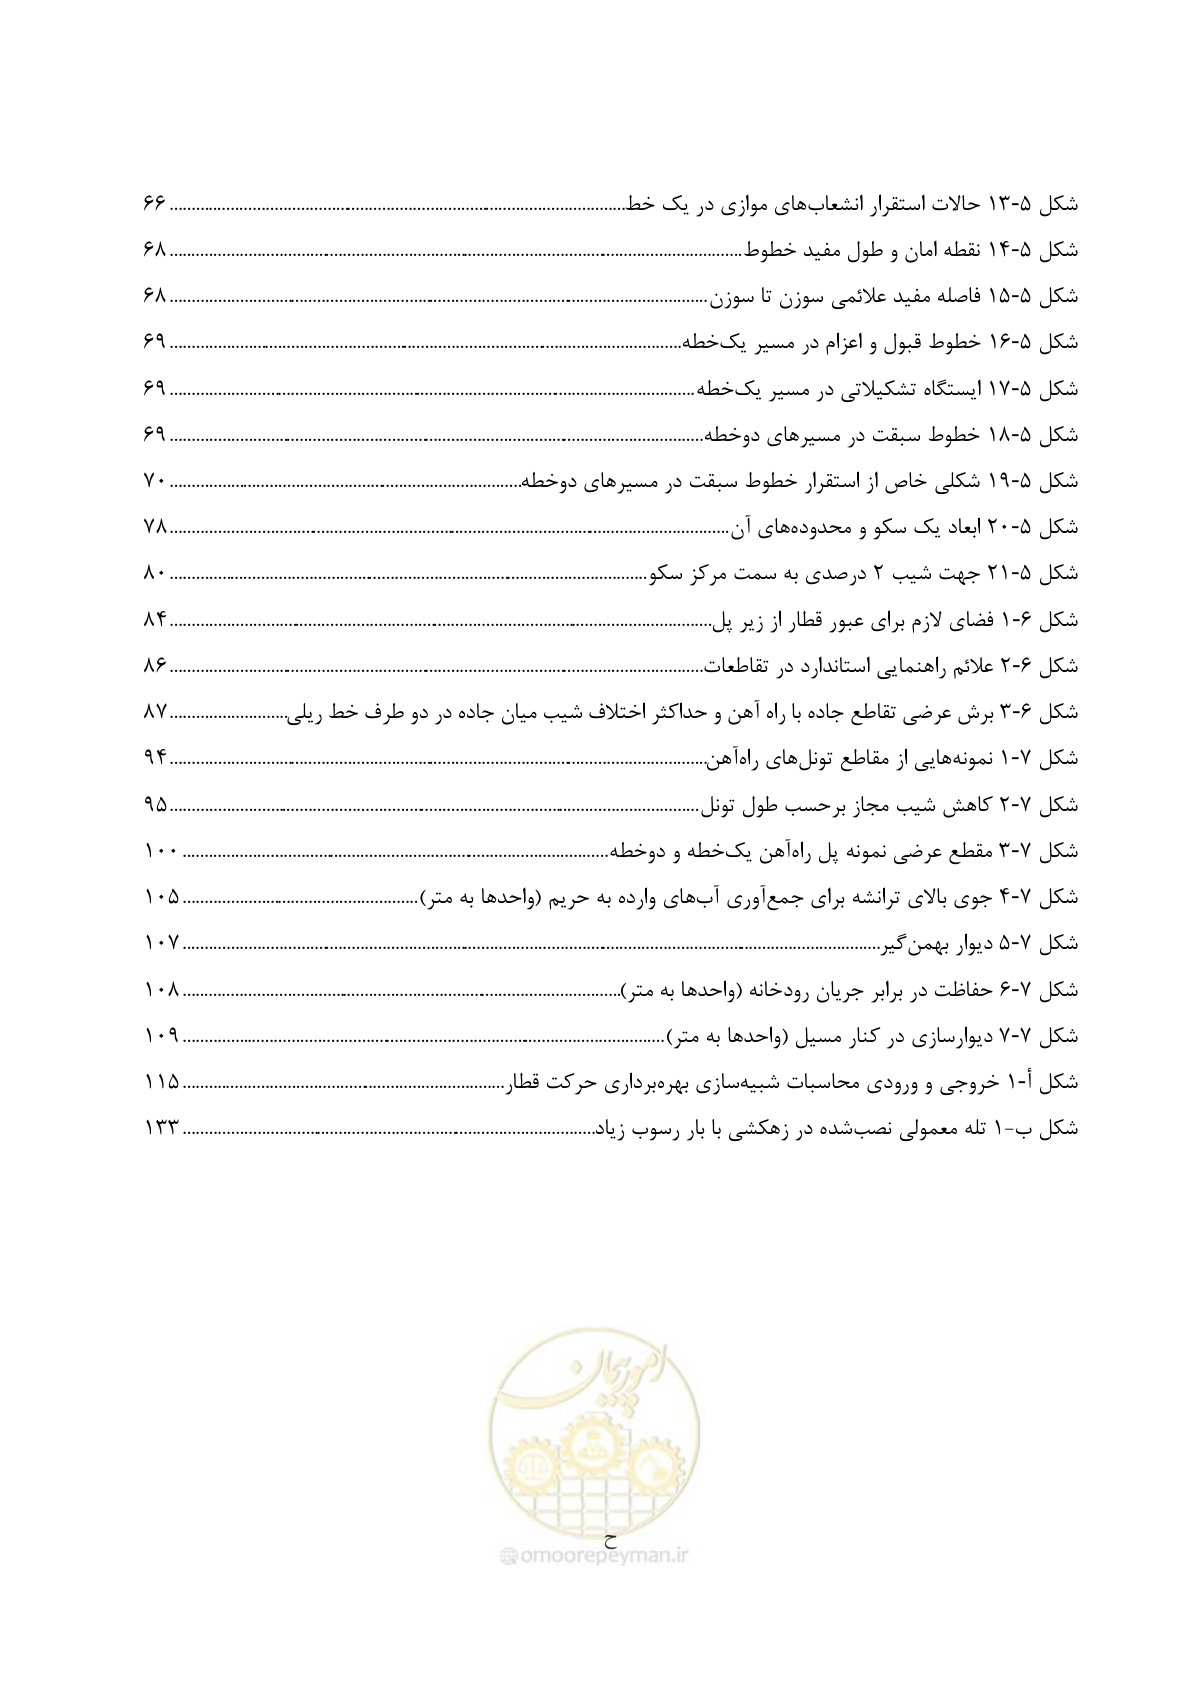 شکل ۵-۱۳ حالات استقرار انشعاب‌های موازی در یک خط ........ ۶۶
شکل ۵-۱۴ نقطه امان و طول مفید خطوط ........ ۶۸
شکل ۵-۱۵ فاصله مفید علائمی سوزن تا سوزن ........ ۶۸
شکل ۵-۱۶ خطوط قبول و اعزام در مسیر یک‌خطه ........ ۶۹
شکل ۵-۱۷ ایستگاه تشکیلاتی در مسیر یک‌خطه ........ ۶۹
شکل ۵-۱۸ خطوط سبقت در مسیرهای دوخطه ........ ۶۹
شکل ۵-۱۹ شکلی خاص از استقرار خطوط سبقت در مسیرهای دوخطه ........ ۷۰
شکل ۵-۲۰ ابعاد یک سکو و محدوده‌های آن ........ ۷۸
شکل ۵-۲۱ جهت شیب ۲ درصدی به سمت مرکز سکو ........ ۸۰
شکل ۶-۱ فضای لازم برای عبور قطار از زیر پل ........ ۸۴
شکل ۶-۲ علائم راهنمایی استاندارد در تقاطعات ........ ۸۶
شکل ۶-۳ برش عرضی تقاطع جاده با راه آهن و حداکثر اختلاف شیب میان جاده در دو طرف خط ریلی ........ ۸۷
شکل ۷-۱ نمونه‌هایی از مقاطع تونل‌های راه‌آهن ........ ۹۴
شکل ۷-۲ کاهش شیب مجاز برحسب طول تونل ........ ۹۵
شکل ۷-۳ مقطع عرضی نمونه پل راه‌آهن یک‌خطه و دوخطه ........ ۱۰۰
شکل ۷-۴ جوی بالای ترانشه برای جمع‌آوری آب‌های وارده به حریم (واحدها به متر) ........ ۱۰۵
شکل ۷-۵ دیوار بهمن‌گیر ........ ۱۰۷
شکل ۷-۶ حفاظت در برابر جریان رودخانه (واحدها به متر) ........ ۱۰۸
شکل ۷-۷ دیوارسازی در کنار مسیل (واحدها به متر) ........ ۱۰۹
شکل أ-۱ خروجی و ورودی محاسبات شبیه‌سازی بهره‌برداری حرکت قطار ........ ۱۱۵
شکل ب-۱ تله معمولی نصب‌شده در زهکشی با بار رسوب زیاد ........ ۱۳۳
امور پیمان
ح
@omoorepeyman.ir